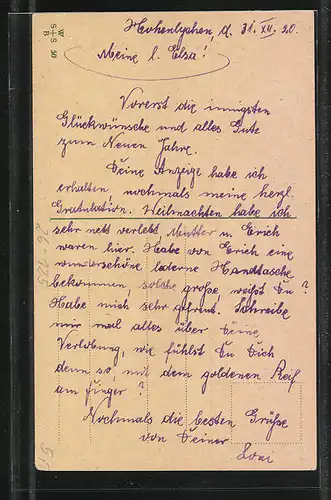 W
S+S 50
B
Hohenlychen, d. 31. XII. 20.
Meine l. Elsa!
Vorerst die innigsten
Glückwünsche und alles Gute
zum Neuen Jahre.
Deine Anzeige habe ich
erhalten, nochmals meine herzl.
Gratulation. Weihnachten habe ich
sehr nett verlebt Mutter u. Erich
waren hier. Habe von Erich eine
wunderschöne lederne Handtasche
bekommen, solche große, weißt Du?
Habe mich sehr gefreut. Schreibe
mir mal alles über Deine
Verlobung, wie fühlst Du Dich
denn so, mit dem goldenen Reif
am Finger?
Nochmals die besten Grüße
von Deiner
Loni